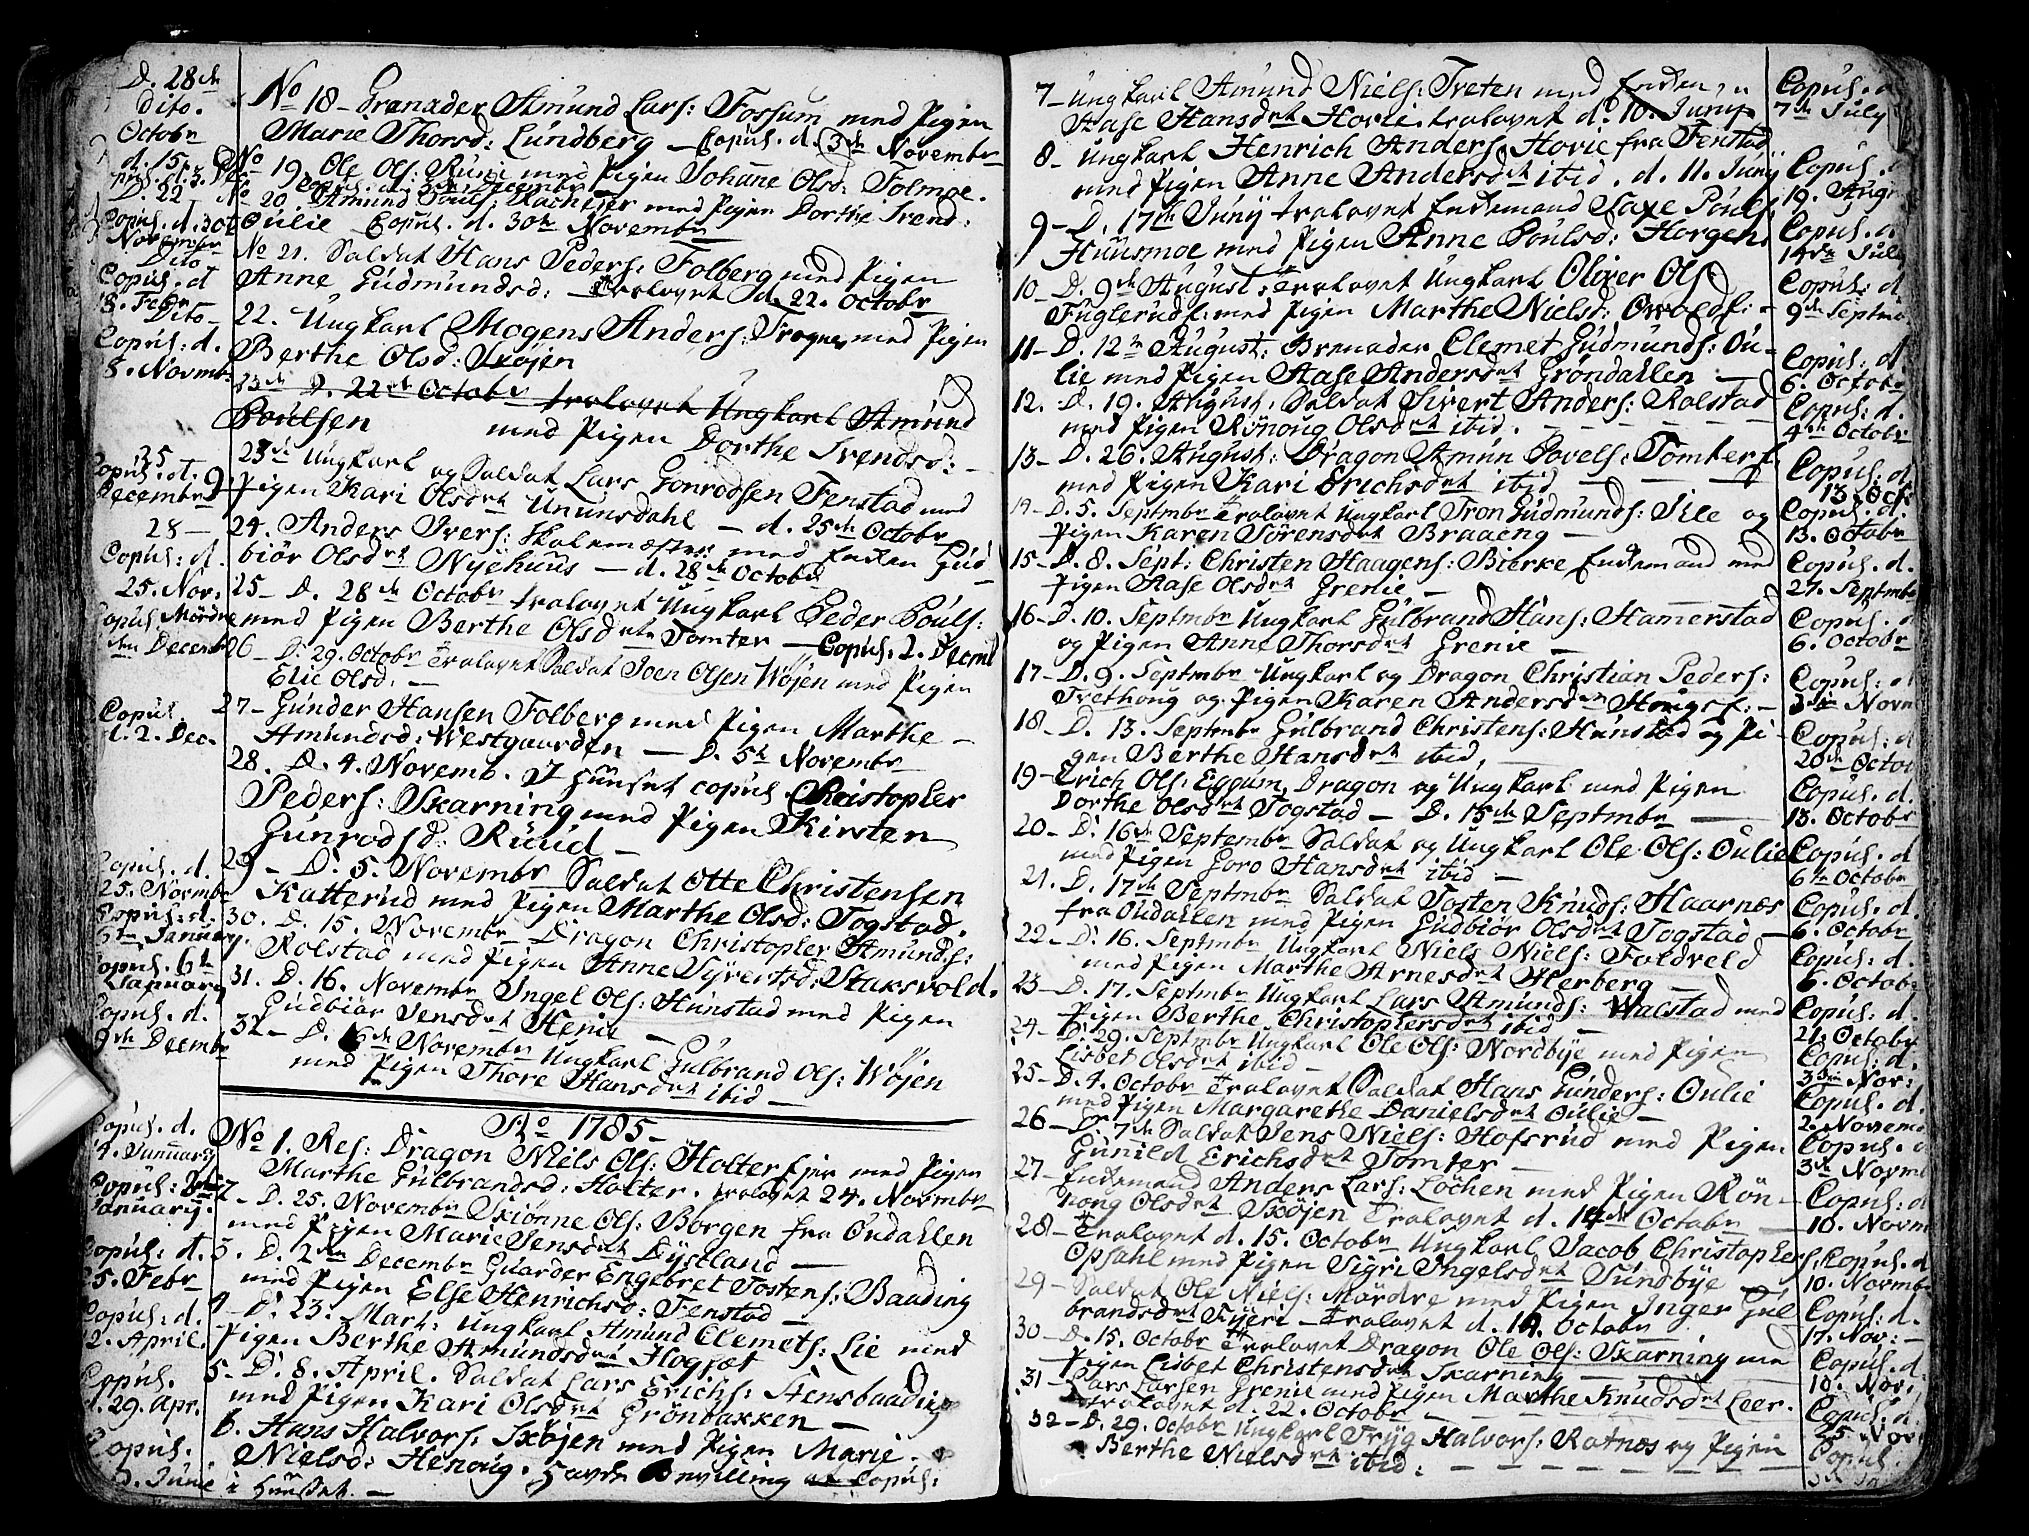 D. 28de
Dito.
Octobr
d. 15.
D. 22
Copul. d. 30t
Novembr
Dito
Copul. d
18. Febr
Dito
Copul: d.
8. Novmbr
25
Copul. d. 9
Decembr
28 —
Copul: d.
25. Nov:
Copul. Mördre
Decemb
Copul.
d. 2. Dec.
Copul. d.
25. Novmbr
Copul: d.
6te January.
Copul. 6te
January
Copul. d.
9de Decembr
Copul. d.
4. January
Copul:
January.
Copul: d.
25. Febr
Copul: d.
12. April.
Copul.
d. 29. Apr.
Copul.
Junie
No 18 – Granader Amund Lars: Fossum med Pigen
Marie Thorsd: Lundberg – Copul. d. 3de Novembr
No 19. Ole Ols: Runi med Pigen Johanne Olsd: Tolmoe.
Copul. d. 3de Decembr
No 20. Amund Pouls: med Pigen Dorthe Svend:
Oulie Copul. d. 30te Novembr
No 21. Saldat Hans Peders: Folberg med Pigen
Anne Gudmundsd: Trolovet d. 22. Octobr
22. Ungkarl Mogens Anders: Frogner med Pigen
Berthe Olsd: Skøjen
23de D. 22de Octobr trolovet Ungkarl Amund
Poulsen med Pigen Dorthe Svendsd: –
23de Ungkarl og Saldat Lars Gonrodsen Fenstad med
Pigen Kari Olsdrt Ununsdahl – d. 25de Octobr
24. Anders Ivers: Skolemæster med Enken Gud–
biör Olsdrt Nyehuus – d. 28de Octobr
25 – D. 28de Octobr trolovet Ungkarl Peder Pouls:
med Pigen Berthe Olsdrt Tomter – Copul: 2. Decmb
26 – D. 29. Octobr Trolovet Saldat Joen Olsen Wøjen med Pigen
Elie Olsd. –
27 – Gunder Hansen Folberg med Pigen Marthe –
Amundsd: Westgaarden – D. 5te Novembr
28. D. 4. Novemb. I Huuset copul. Christopher
Peders: Skarning med Pigen Kirsten
Gunrodsd: Ruud –
29 – D. 5. Novembr Saldat Otte Christensen
Katterud med Pigen Marthe Olsd: Togstad.
30. D. 15. Novembr Dragon Christopher Amunds:
Rolstad med Pigen Anne Syvertsd: Staksvold.
31. D. 16. Novembr Ingel Ols: Hunstad med Pigen
Gudbiör Jensdrt Henie –
32 – D. 16de Novembr Ungkarl Gulbrand Ols: Wøjen
med Pigen Thore Hansdrt ibid –
Ao 1785 –
No 1. Res: Dragon Niels Ols: Holter med Pigen
Marthe Gulbrandsd: Holter. trolovet 24. Novmbr
2 – D. 25. Novembr Skiönne Ols: Borgen fra Oudallen
med Pigen Marie Jensdrt Dystland –
3. D. 2den Decembr Guarder Engebret Tostens: Baading
med Pigen Else Henrichsd: Fenstad –
4 – D. 23. Mart: Ungkarl Amund Clemets: Lie med
Pigen Berthe Amundsdrt Hogset
5 – D. 8. April. Saldat Lars Erichs: Stensbaading
med Pigen Kari Olsdrt Grönbakken –
6. Hans Halvors: Skøjen med Pigen Marie
Nielsd: Henoug. havde Bevilling at Copul:
i Huuset. –
7 – Ungkarl Amund Niels: Treten med Enken
Aase Hansdrt Hovie trolovet d. 10. Juny
8 – Ungkarl Henrich Anders: Hovie fra Fenstad
med Pigen Anne Andersdrt ibid. d. 11. Juny
9 – D. 17de Juny trolovet Enkemand Saxe Pouls:
Huusmoe med Pigen Anne Poulsd: Horgen
10 – D. 9de August: Trolovet Ungkarl Oliver Ols:
Fuglerud med Pigen Marthe Nielsd:
11 – D. 12te August: Grenader Clemet Gudmunds: Ou–
lie med Pigen Aase Andersdrt Gröndallen –
12. D. 19. August. Saldat Sivert Anders: Rolstad
med Pigen Rönoug Olsdrt ibid. – – – –
13 – D. 26. August: Dragon Amun Povels: Tomter
med Pigen Kari Erichsdrt ibid – – –
14 – D. 5. Septmbr Trolovet Ungkarl Tron Gudmunds: Sile og
Pigen Karen Sörensdrt Braaeng –
15 – D. 8. Sept: Christen Haagens: Bierke Enkemand med
Pigen Aase Olsdrt Grenie –
16 – D. 10. Septmbr Ungkarl Gulbrand Hans: Hamerstad
og Pigen Anne Thorsdrt Grenie –
17 – D. 9. Septmbr Ungkarl og Dragon Christian Peders:
Trethoug og Pigen Karen Andersd –
18 – D. 13. Septmbr Gulbrand Christens: Hunstad og Pi–
gen Berthe Hansdrt ibid,
19 – Erich Ols: Eggum, Dragon og Ungkarl med Pigen
Dorthe Olsdrt Togstad – D. 15de Septmbr –
20 – D. 16de Septembr Saldat og Ungkarl Ole Ols: Oulie
med Pigen Goro Hansdrt ibid –
21. D. 17de Septmbr Saldat Tosten Knuds: Haarnæs
fra Oudallen med Pigen Gudbiör Olsdrt Togstad –
22 – D. 16. Septmbr Ungkarl Niels Niels: Foldveld
med Pigen Marthe Arnesdrt Herberg –
23 – D. 17. Septmbr Ungkarl Lars Amunds: Walstad med
Pigen Berthe Christophersdrt ibid –
24 – D. 29. Septmbr Ungkarl Ole Ols: Nordbye med Pigen
Lisbet Olsdrt ibid –
25 – D. 4. Octobr Trolovet Saldat Hans Gunders: Oulie
med Pigen Margarethe Danielsdrt Oulie –
26 – D. 7de Saldat Jens Niels: Hofsrud med Pigen
Gunild Erichsdrt Tomter –
27 – Enkemand Anders Lars: Löchen med Pigen Rön–
noug Olsdrt Skøjen Trolovet d. 14de Octobr –
28 – Trolovet d. 15. Octobr Ungkarl Jacob Christophers:
Opsahl med Pigen Sigri Ingelsdrt Sundbye –
29 – Saldat Ole Niels: Mördre med Pigen Inger Gul
brandsdrt Fyeri – Trolovet d. 14. Octobr
30 – D. 15. Octobr Trolovet Dragon Ole Ols: Skarning med
Pigen Lisbet Christensdrt Skarning –
31 – Lars Larsen Grenie med Pigen Marthe Knudsdrt Leer.
Trolovet d. 22. Octobr – – –
32 – D. 29. Octobr Ungkarl Tryg Halvors: Rotnæs og Pigen
Berthe Nielsdrt ibid: – – – – –
Copul. d
7de July
Copul. d
19. Augu
Copul. d
14de July
Copul: d.
9de Septmb
Copul: d
6. Octobr
Copul: d.
4de Octobr
Copul: d
13. Oct:
Copul. d.
13. Octobr
Copul. d.
27. Septmbr
Copul. d
6. Octobr
Copul: d
3die Novm
Copul: d
20de Octo
Copul. d.
13. Octobr
Copul. d
6te Octobr
Copul. d.
6. Octobr
Copul: d.
6. Octob:
Copul: d.
21. Octobr
Copul: d.
3die Nov:
Copul. d.
2. Novem
Copul: d
3de Novm
Copul: d
10. Novm
Copul. d
10. Novmbr
Copul: d.
17. Nov: –
Copul: d.
10. Nov.
Copul: d.
25. Nov
Copul: